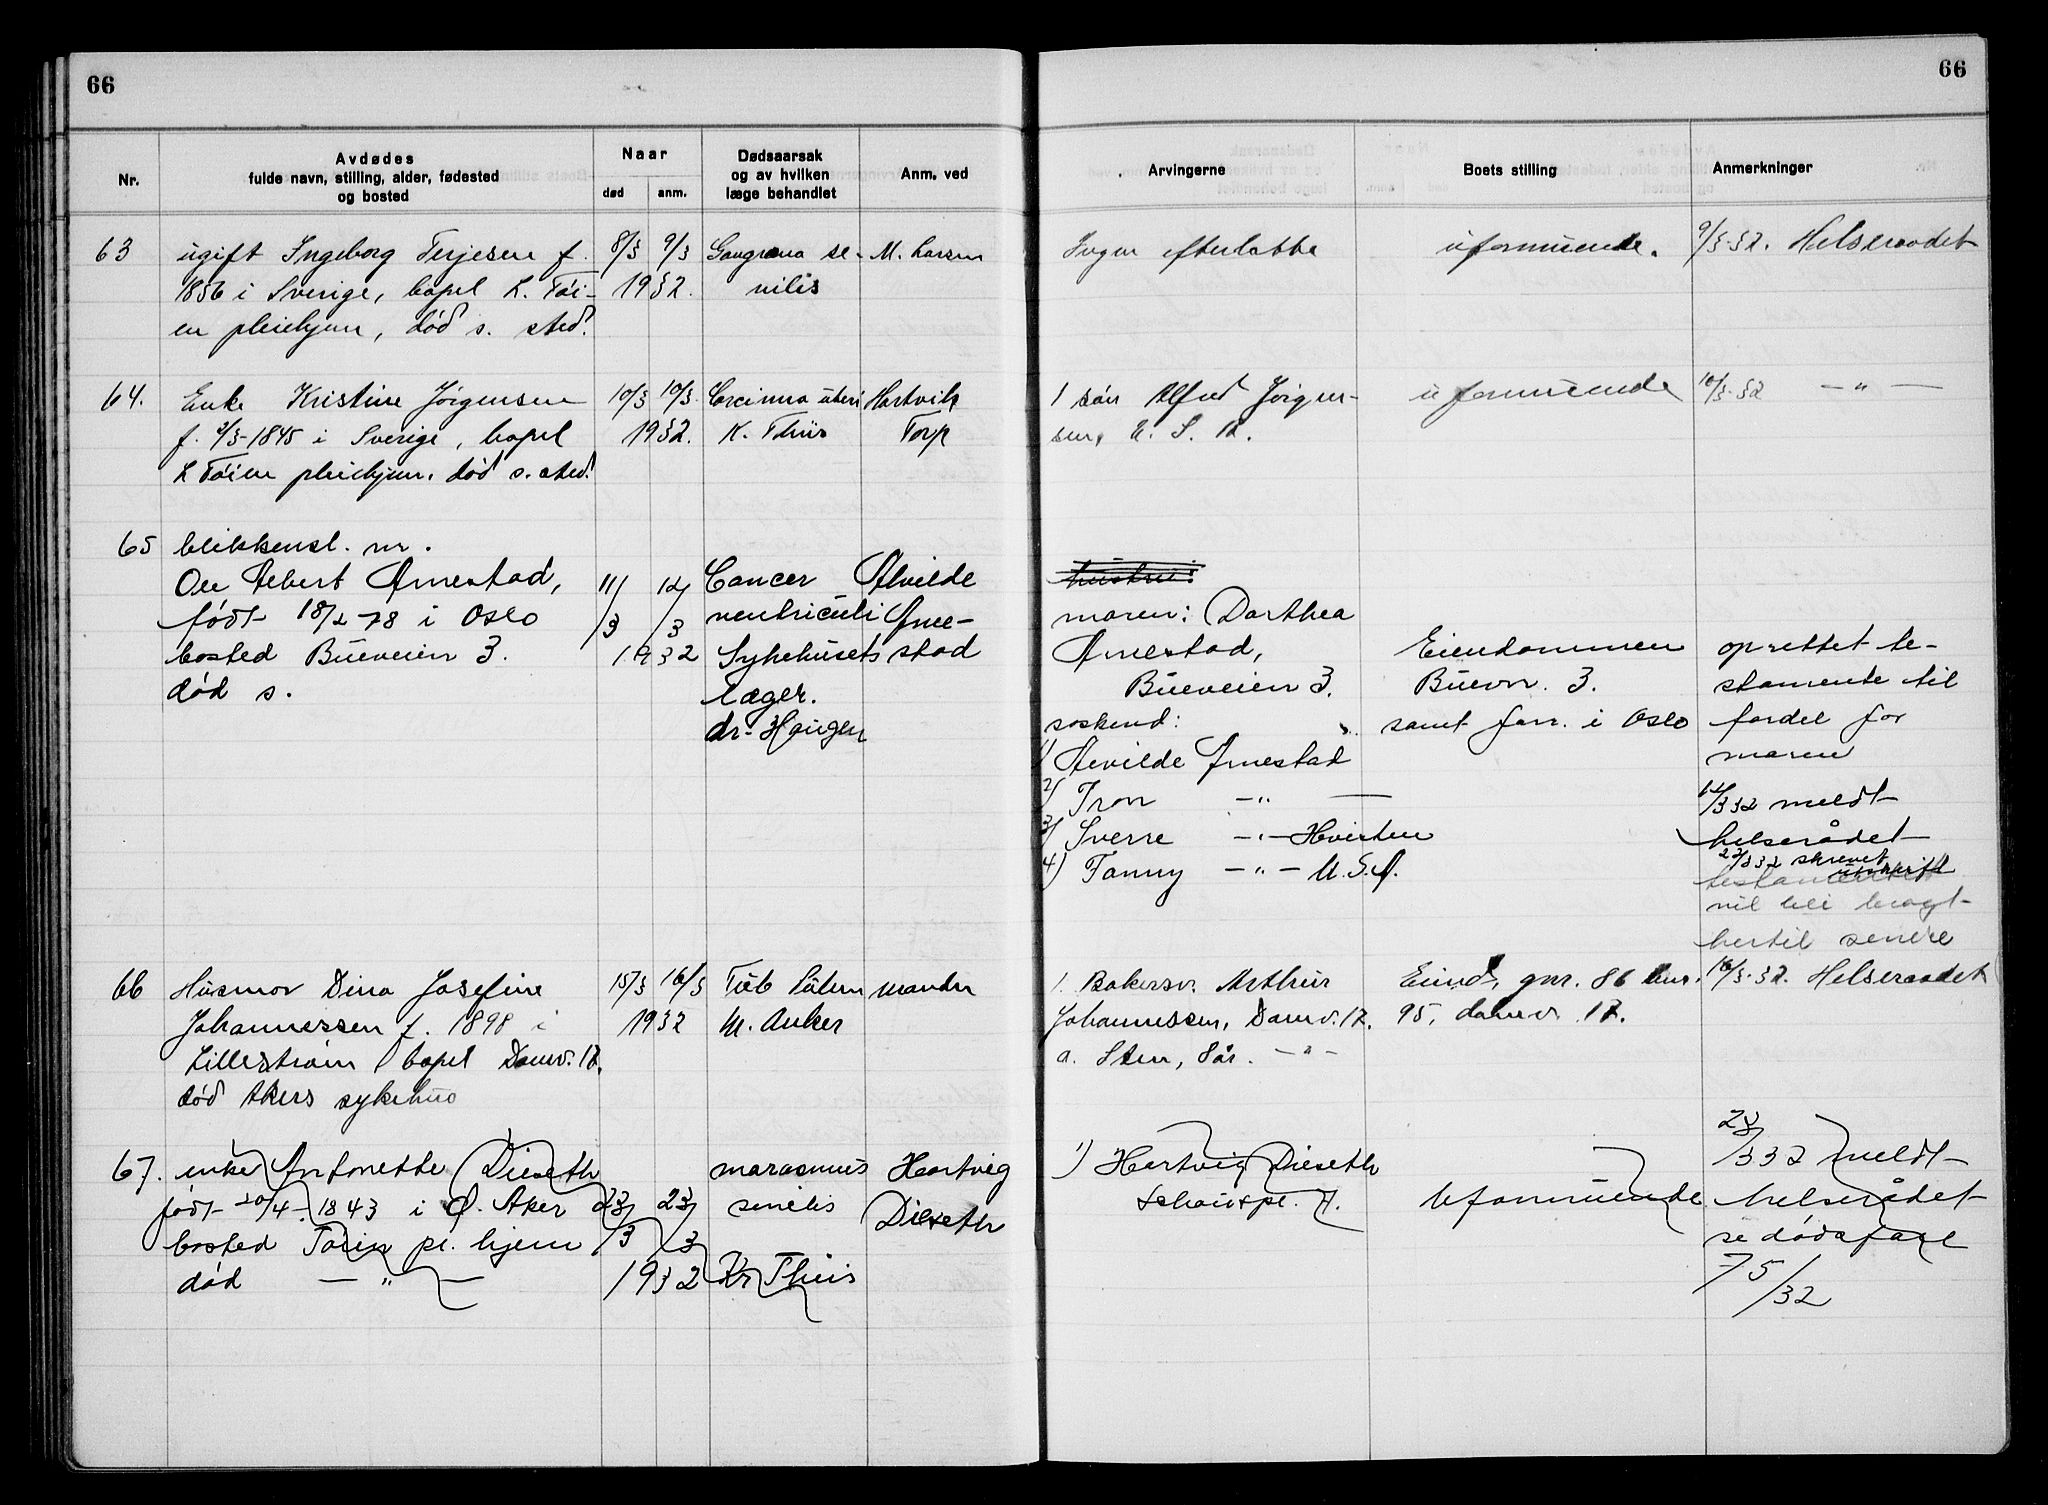 66
66
Nr.
Avdødes
fulde navn, stilling, alder, fødested
og bosted
Naar
død
anm.
Dødsaarsak
og av hvilken
læge behandlet
Anm. ved
Arvingerne
Boets stilling
Anmerkninger
63 ugift Ingeborg Terjesen f. 8/3 9/3 Gangrena se- M. Larsen Ingen efterlatte uformuende. 9/3-32. Helseraadet
1856 i Sverige, bopel L. Tøi- 1932. nilis
en pleiehjem, død s. sted.
64. Enke Kristine Jørgensen 10/3 10/3. Carcinma uteri Hartvik 1 søn Alfred Jørgen- uformuende 10/3-32 — " —
f. 2/3-1845 i Sverige, bopel 1932. K. Thiis Torp sen, U. S. A.
L Tøien pleiehjem. død s. sted.
65 blikkensl. m.
Ole Albert Arnestad, 11/3 12/3 Cancer Alvilde hustru:
født 18/2-78 i Oslo ventriculi Arne- moren: Dorthea
bosted Bueveien 3. 1932 Sykehusets stad Arnestad, Eiendommen oprettet te-
død s. læger. Bueveien 3. Buevn. 3. stamente til
dr. Haugen søskend: samt forr. i Oslo fordel for
1) Alvilde Arnestad moren
2) Tron — " — 12/3 32 meldt
3) Sverre — " — Hvisten helserådet
4) Fanny — " — U.S.A. 22/3 32 skrevet
testamentet utskrift
vil bli bragt
hertil senere
66 Husmor Dina Josefine 15/3 16/3 Tub Sutum Mander 1. Bakersv. Arthur Eiend. gnr. 86 bnr. 16/3-32. Helseraadet
Johannessen f. 1898 i 1932 M. Anker Johannessen, Damv. 17. 95, damv. 17.
Lillestrøm bopel Damv. 17. a. Sten, 8 år. — " —
død Akers sykehus
67. enke Antonette Dieseth marasmus Hartvig 1) Hartvig Dieseth 23/3 32 meldt
født 20/4-1843 i Ø. Aker 23/3 23/3 senilis Dieseth Schouspl. 7. Uformuende helserådet
bosted Tøien pl. hjem se dødsfall
død — " — 1932 Kr Thiis 75/32